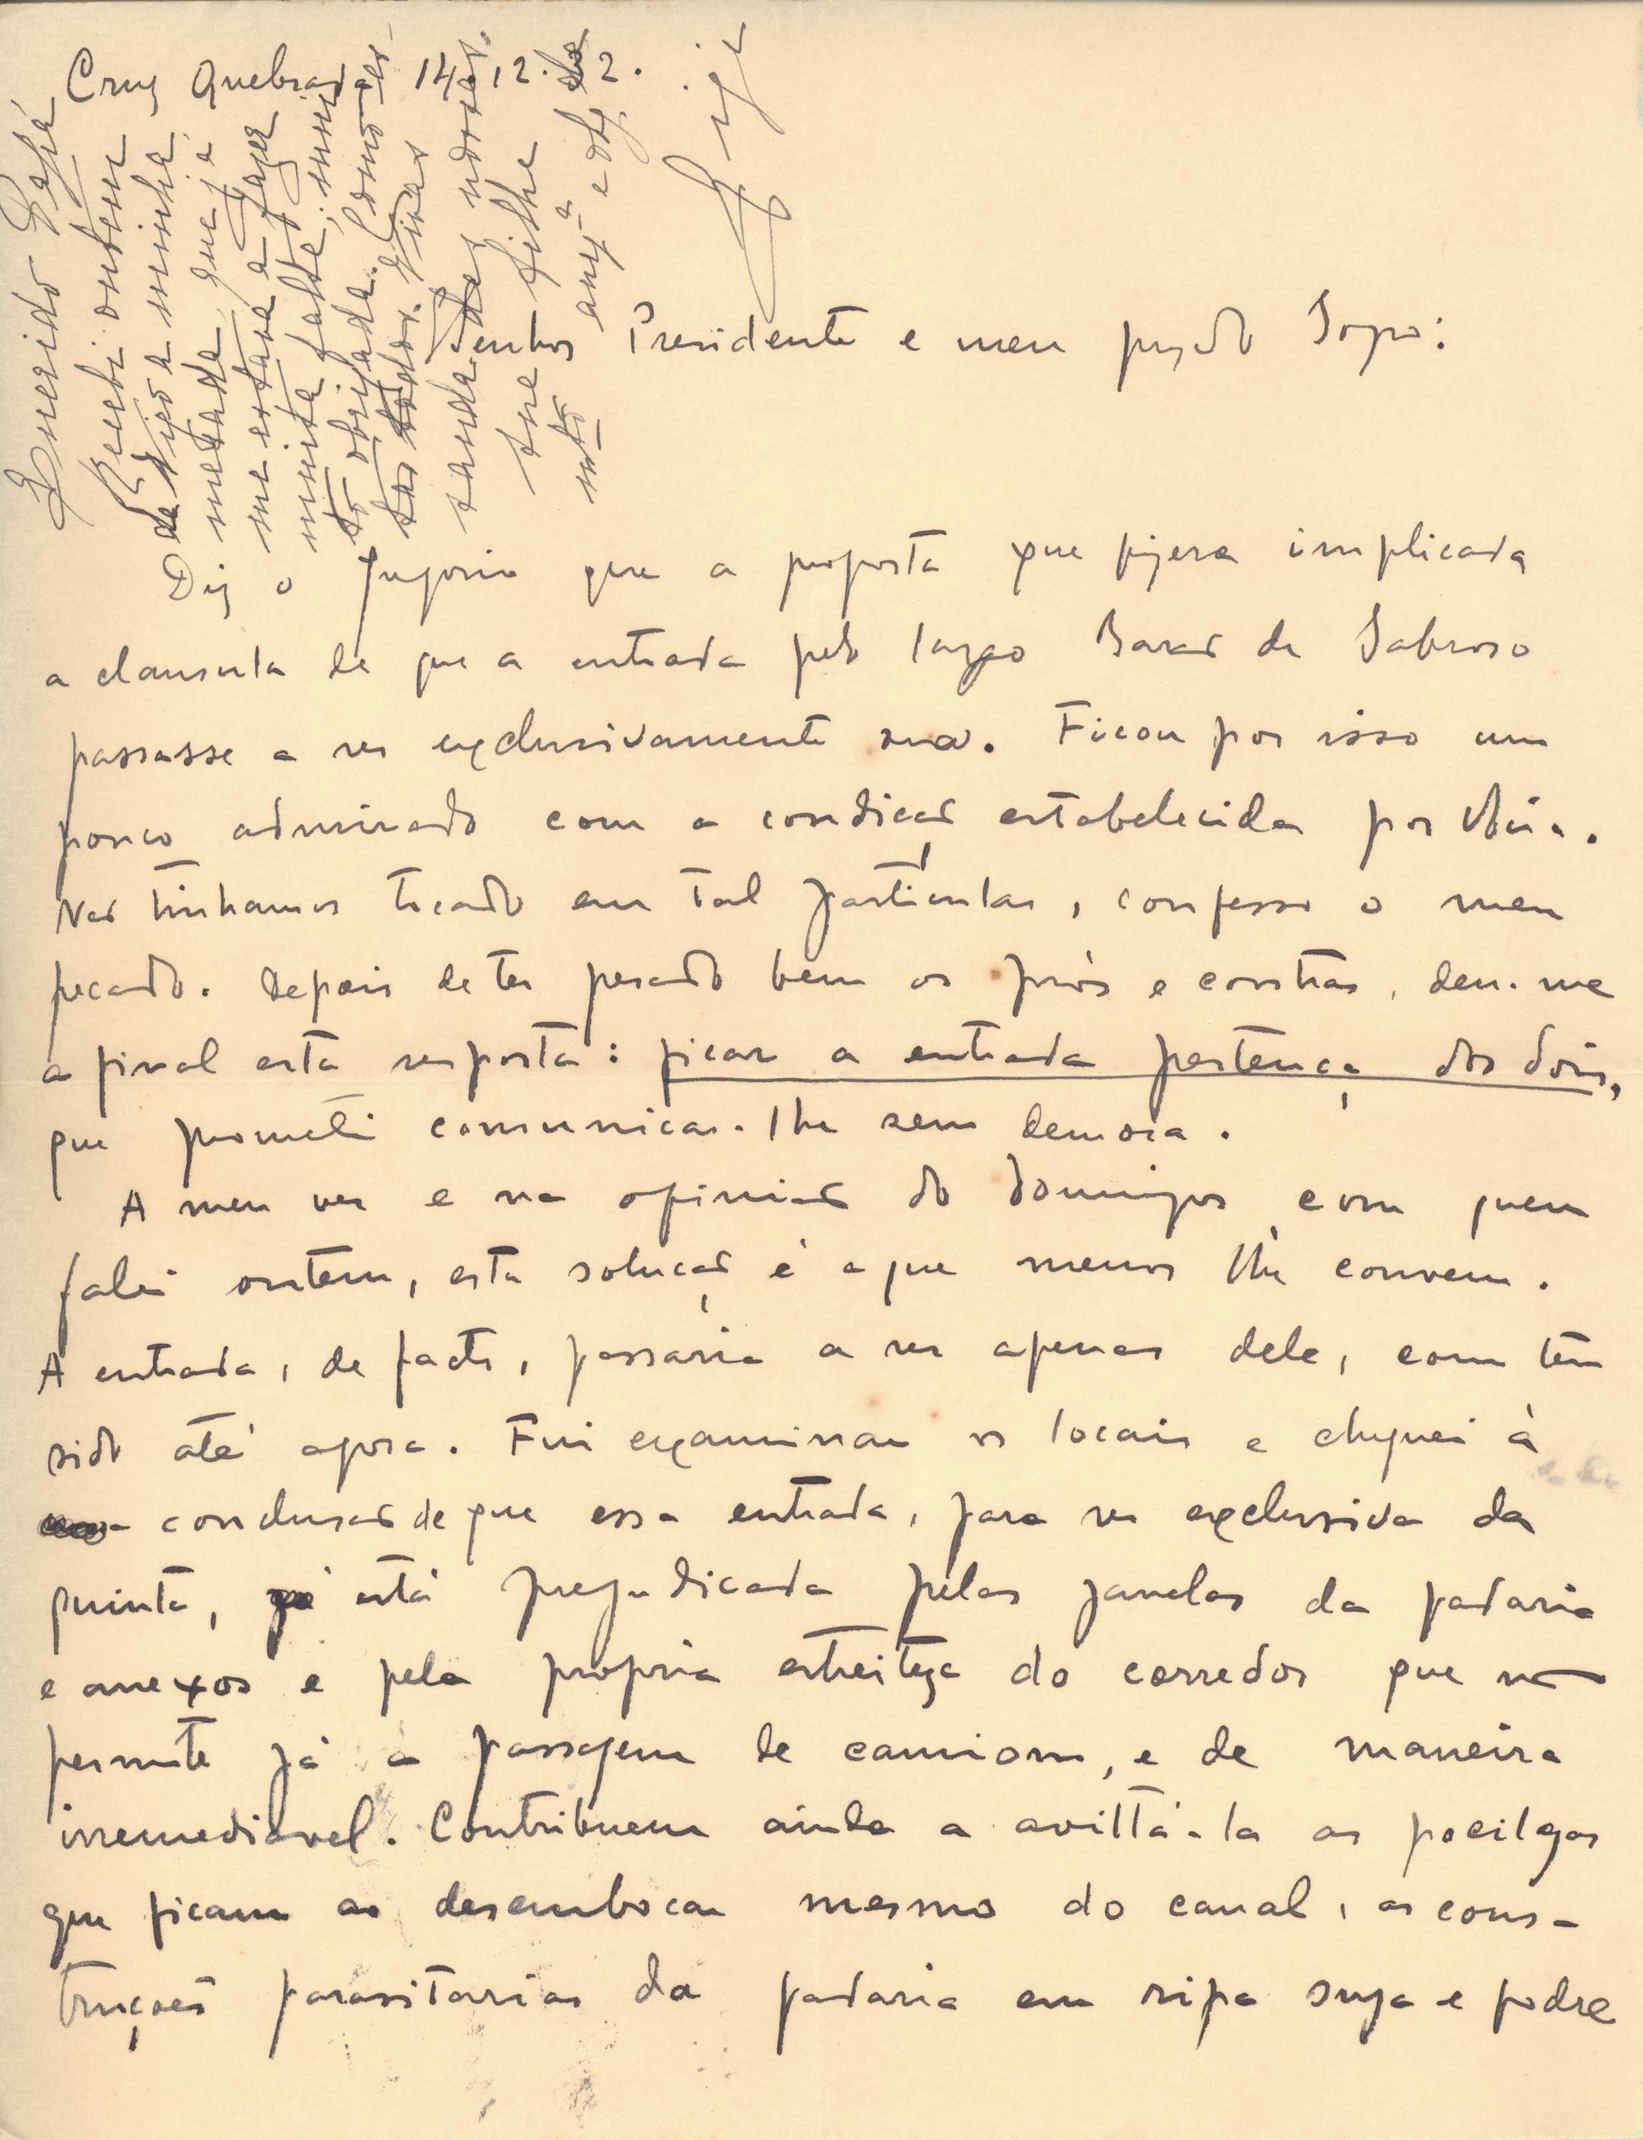 Cruz Quebrada 14.12.
Senhor Presidente e meu prezdo Sogro:
Diz o que a proposta que fizera implicava
a clausula de que a entrada pelo largo Barão de Sabroso
passasse a ser exclusivamente sua. Ficou por isso um
pouco admirado com a condição estabelecida por
Não tinhamos tocado em tal particular, confesso o meu
pecado. Depois de ter pesado bem os prós e contras, deu-me
a final esta resposta: ficar a entrada pertença dos dois,
que prometi comunicar-lhe sem demora.
A meu ver e na opinião do Domingos com quem
falei ontem, esta solução é a que menos lhe convem.
A entrada, de facto, passaria a ser apenas dele, com tem
sido até agora. Fui examinar os locais e cheguei à
conclusão de que essa entrada, para ser exclusiva da
quinta, já está prejudicada pelas janelas da padaria
e anexos e pela propria estreiteza do corredor que não
permite já a passagem de camions, e de maneira
irremediavel. Contribuem ainda a aviltá-la as pocilgas
que ficam ao desembocar mesmo do canal, as cons-
truções parasitarias da padaria em ripa suja e podre
Querido Papá
Recebi ontem
a minha
metade que já
me estava a fazer
muita falta; mui-
to obrigada. Como es-
tão todos?
saudades nossas.
sua filha
mtº amgª e obg.
Gije